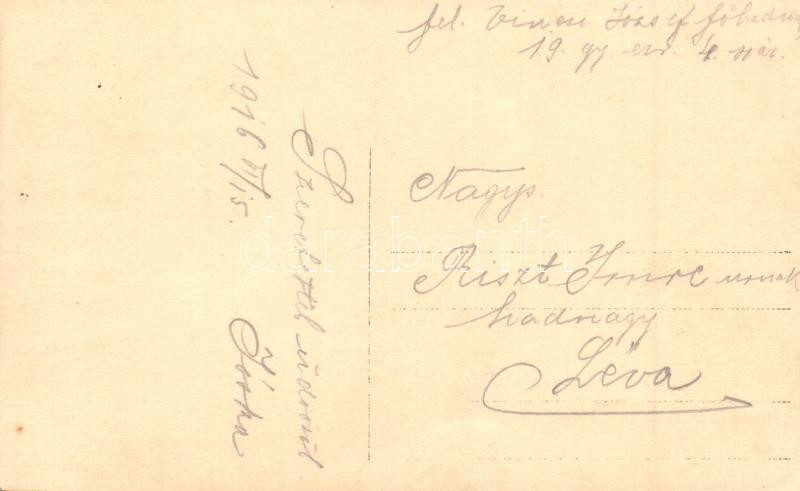 fel. Vincze József főhadnagy
19. gy. ezr. 4. szár.
Nagys.
Riszt Imre urnak
hadnagy
Léva
1916 VI/15.
Szeretettel üdvözöl
Jóska
darabanth